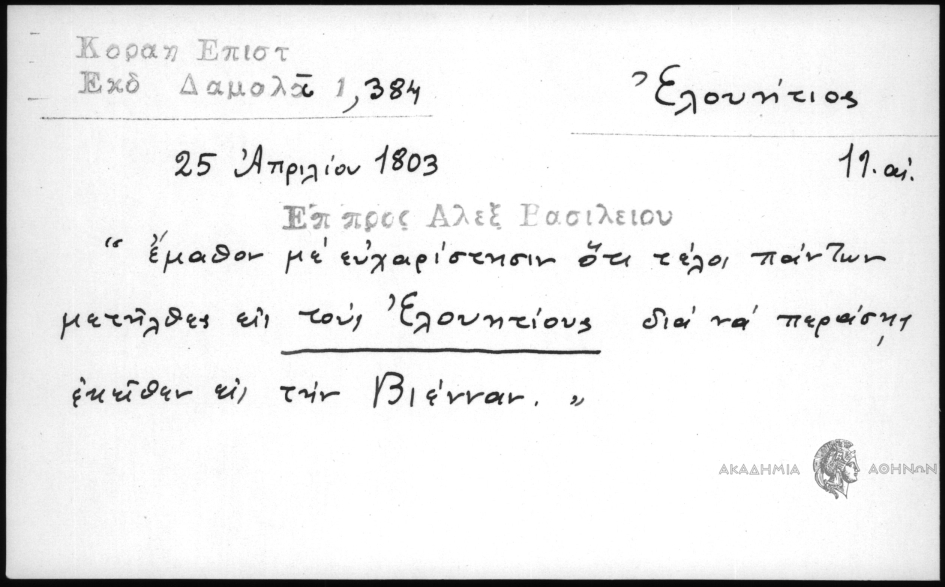 Κοραη Επιστ
Εκδ Δαμαλᾶ 1,384
Ἑλουήτιος
25 Ἀπριλίου 1803
19. αἰ.
Επ προς Αλεξ Βασιλειου
“ ἔμαθον μέ εὐχαρίστησιν ὅτι τέλος πάντων
μετῆλθες εἰς τούς Ἑλουητίους διά νά περάσῃς
ἐκεῖθεν εἰς τήν Βιένναν. „
ΑΚΑΔΗΜΙΑ ΑΘΗΝΩΝ